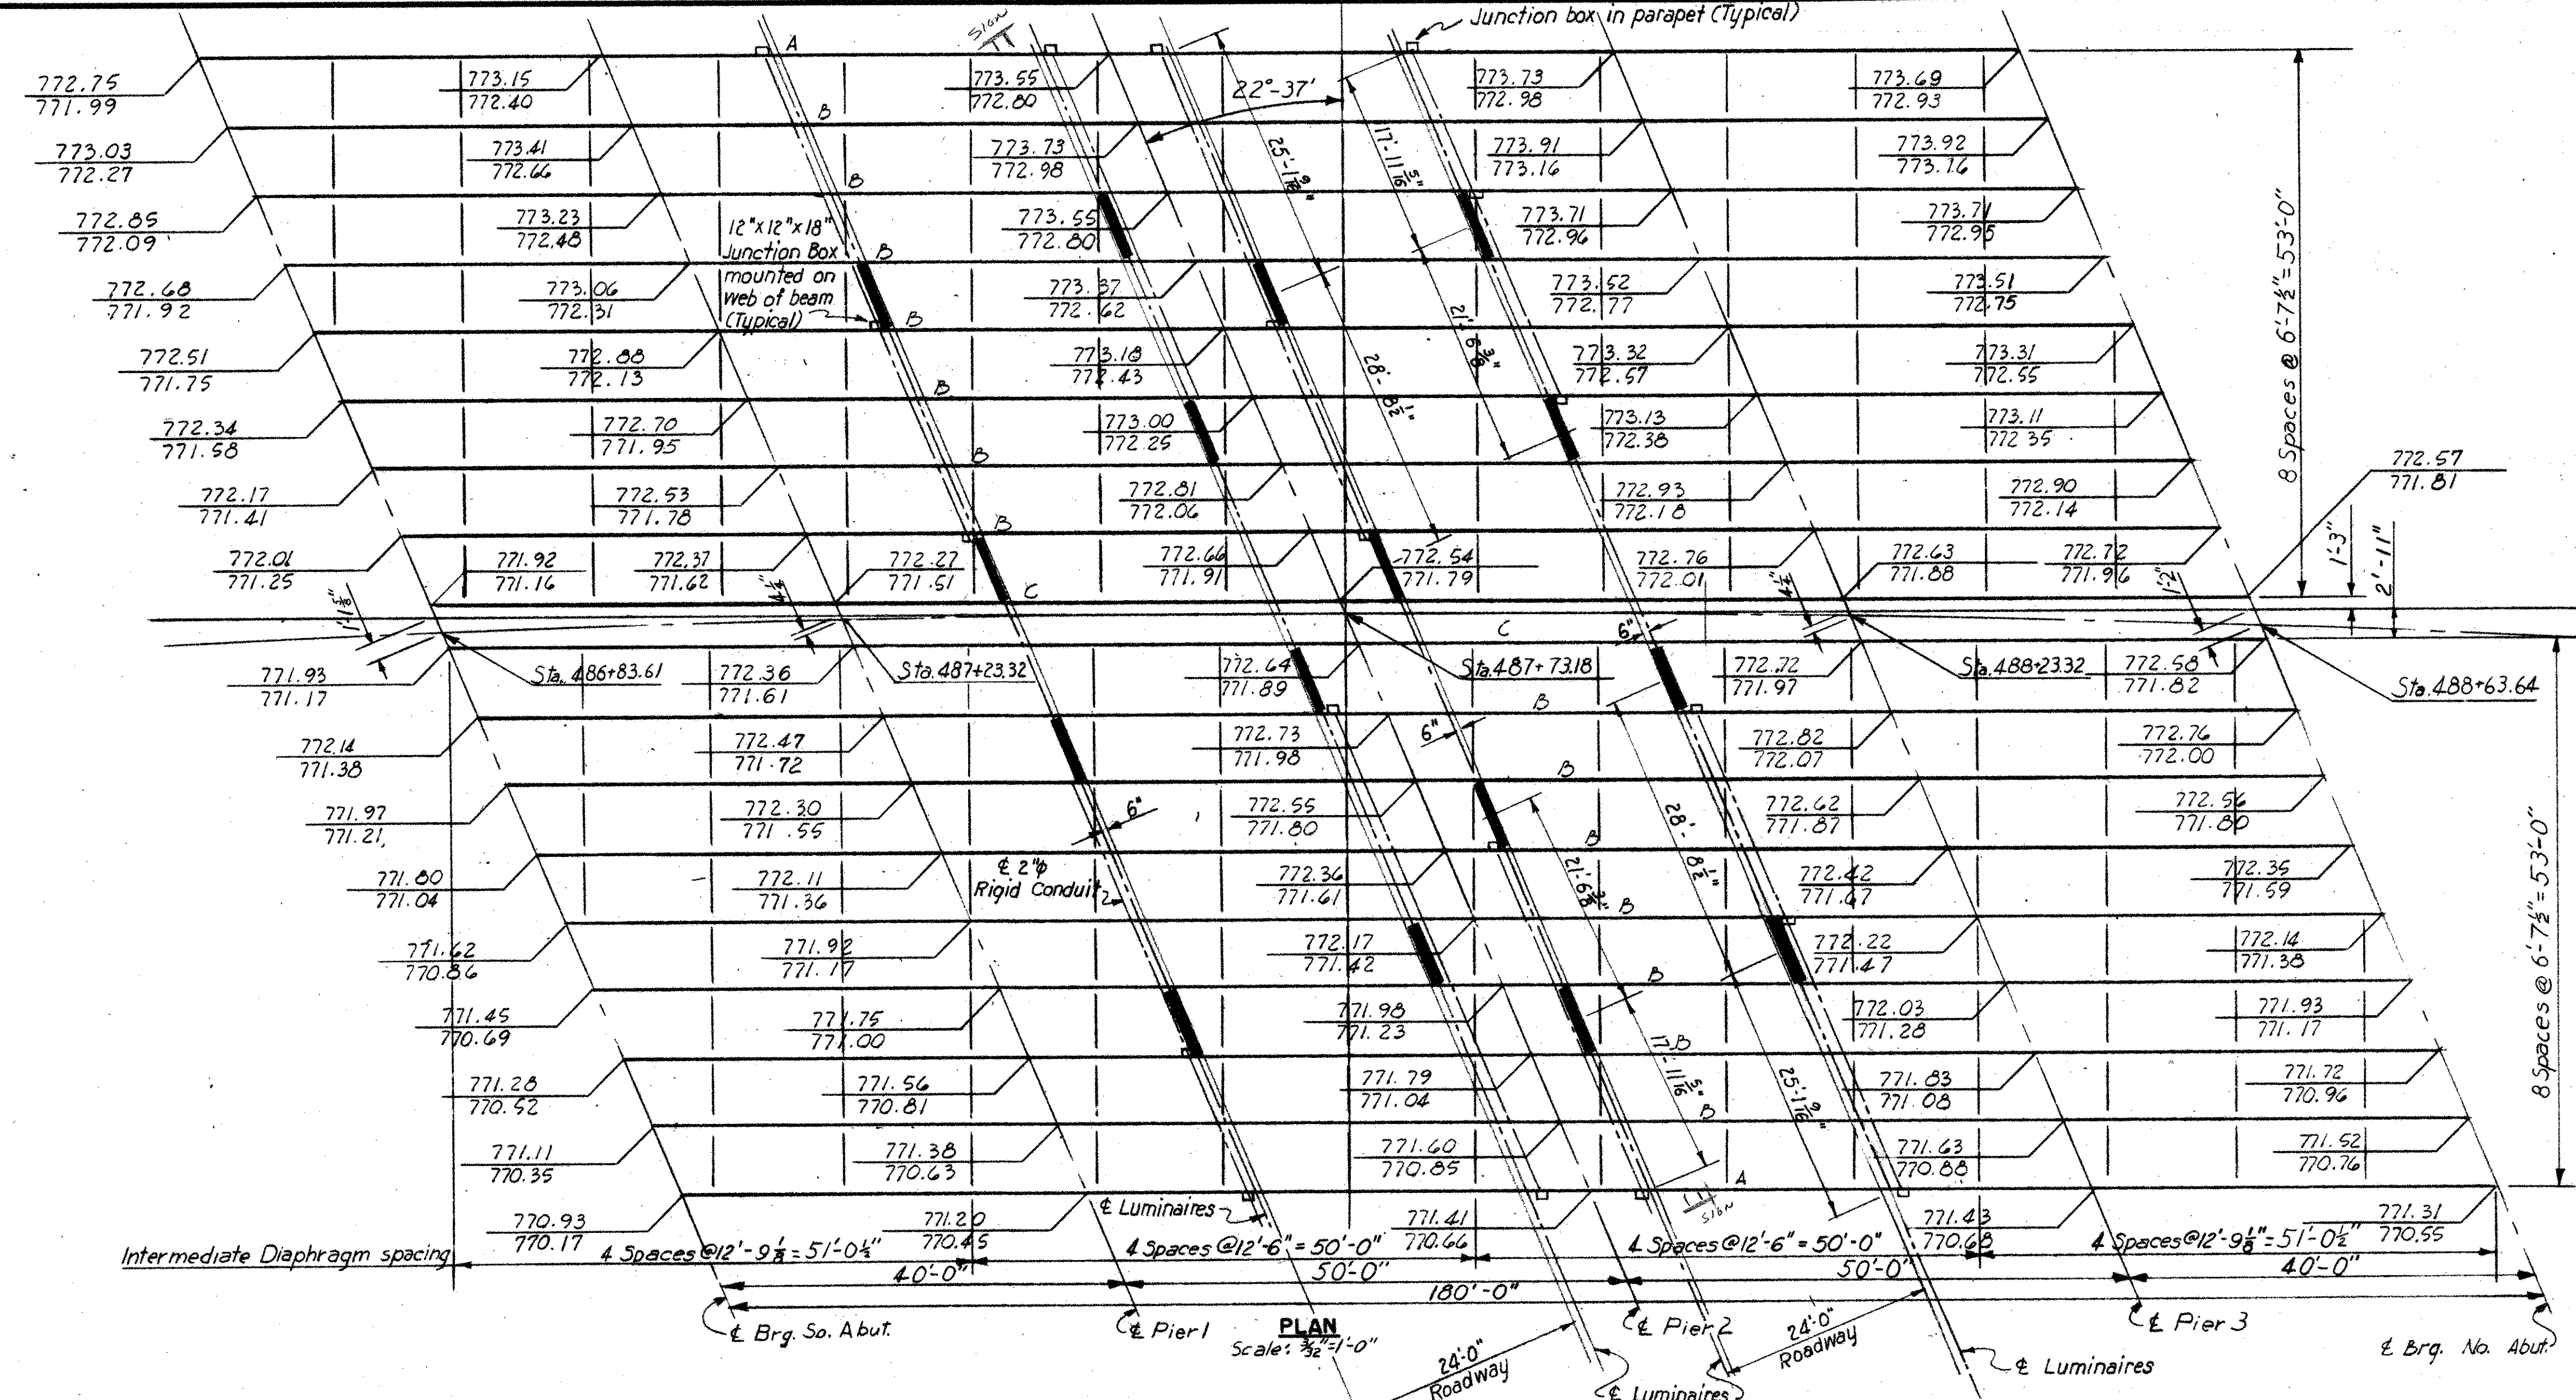 Junction box in parapet (Typical)
SIGN
A
772.75
771.99
773.15
772.40
773.55
772.80
22°-37'
773.73
772.98
773.69
772.93
B
773.03
772.27
773.41
772.66
773.73
772.98
25'-1 9/16"
17'-11 5/16"
773.91
773.16
773.92
773.16
B
772.85
772.09
773.23
772.48
12"x12"x18"
Junction Box
mounted on
web of beam
(Typical)
773.55
772.80
773.71
772.96
773.71
772.95
8 Spaces @ 6'-7½" = 53'-0"
B
772.68
771.92
773.06
772.31
773.37
772.62
773.52
772.77
773.51
772.75
B
772.51
771.75
772.88
772.13
773.18
772.43
28'-8½"
21'-6 3/8"
773.32
772.57
773.31
772.55
B
772.34
771.58
772.70
771.95
773.00
772.25
773.13
772.38
773.11
772.35
B
772.17
771.41
772.53
771.78
772.81
772.06
772.93
772.18
772.90
772.14
772.57
771.81
B
772.01
771.25
771.92
771.16
772.37
771.62
772.27
771.51
772.66
771.91
772.54
771.79
772.76
772.01
772.63
771.88
772.72
771.96
1'-3"
2'-11"
1'-1 5/8"
C
C
6"
1'-2"
771.93
771.17
Sta. 486+83.61
772.36
771.61
Sta. 487+23.32
772.64
771.89
Sta. 487+73.18
772.72
771.97
Sta. 488+23.32
772.58
771.82
Sta. 488+63.64
772.14
771.38
772.47
771.72
772.73
771.98
6"
B
772.82
772.07
772.76
772.00
771.97
771.21
772.30
771.55
6"
772.55
771.80
B
772.62
771.87
772.56
771.80
771.80
771.04
772.11
771.36
℄ 2"φ
Rigid Conduit
772.36
771.61
21'-6 3/8"
B
28'-8½"
772.42
771.67
772.35
771.59
8 Spaces @ 6'-7½" = 53'-0"
771.62
770.86
771.92
771.17
772.17
771.42
B
772.22
771.47
772.14
771.38
771.45
770.69
771.75
771.00
771.98
771.23
B
772.03
771.28
771.93
771.17
771.28
770.52
771.56
770.81
771.79
771.04
17'-11 5/16"
B
25'-1 9/16"
771.83
771.08
771.72
770.96
771.11
770.35
771.38
770.63
771.60
770.85
B
771.63
770.88
771.52
770.76
A
SIGN
770.93
770.17
771.20
770.45
℄ Luminaires
771.41
770.66
771.43
770.68
771.31
770.55
Intermediate Diaphragm spacing
4 Spaces @ 12'-9⅛" = 51'-0½"
4 Spaces @ 12'-6" = 50'-0"
4 Spaces @ 12'-6" = 50'-0"
4 Spaces @ 12'-9⅛" = 51'-0½"
40'-0"
50'-0"
50'-0"
40'-0"
180'-0"
℄ Brg. So. Abut.
℄ Pier 1
PLAN
Scale: 3/32"=1'-0"
℄ Pier 2
℄ Pier 3
℄ Brg. No. Abut.
24'-0"
Roadway
℄ Luminaires
24'-0"
Roadway
℄ Luminaires